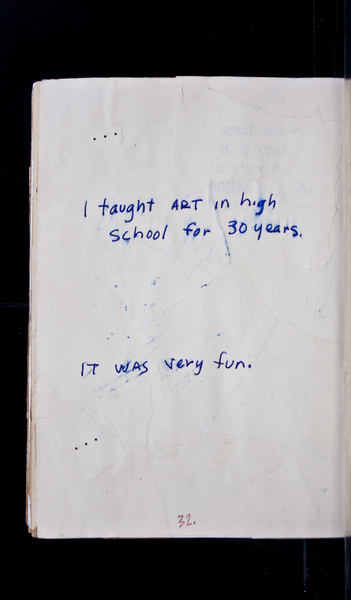 ...
I taught ART in high
school for 30 years.
IT WAS very fun.
...
32.